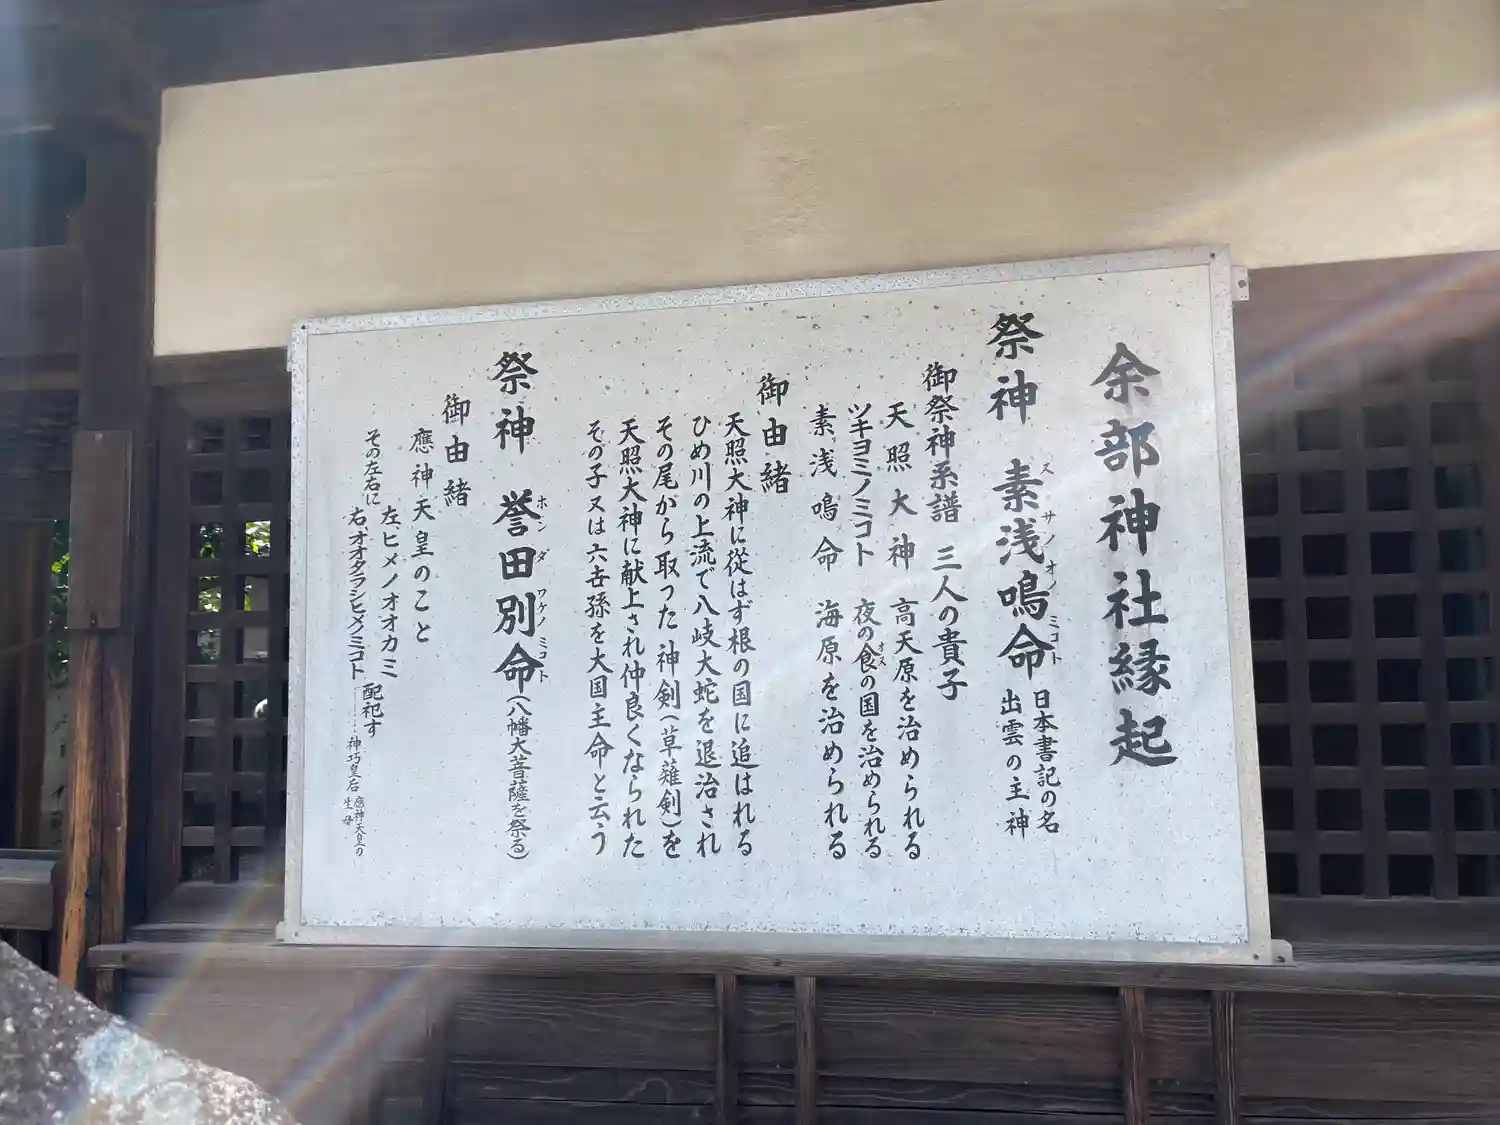 余部神社縁起
祭神 素浅鳴命 日本書記の名
スサノオノミコト
出雲の主神
御祭神系譜 三人の貴子
天照大神 高天原を治められる
ツキヨミノミコト 夜の食の国を治められる
オス
素浅鳴命 海原を治められる
御由緒
天照大神に従はず根の国に追はれる
ひめ川の上流で八岐大蛇を退治され
その尾から取った神剣(草薙剣)を
天照大神に献上され仲良くなられた
その子又は六世孫を大国主命と云う
祭神 誉田別命(八幡大菩薩を祭る)
ホンダワケノミコト
御由緒
應神天皇のこと
その左右に
左、ヒメノオオカミ
右、オオタラシヒメノミコト
配祀す
神巧皇后 應神天皇の
生母